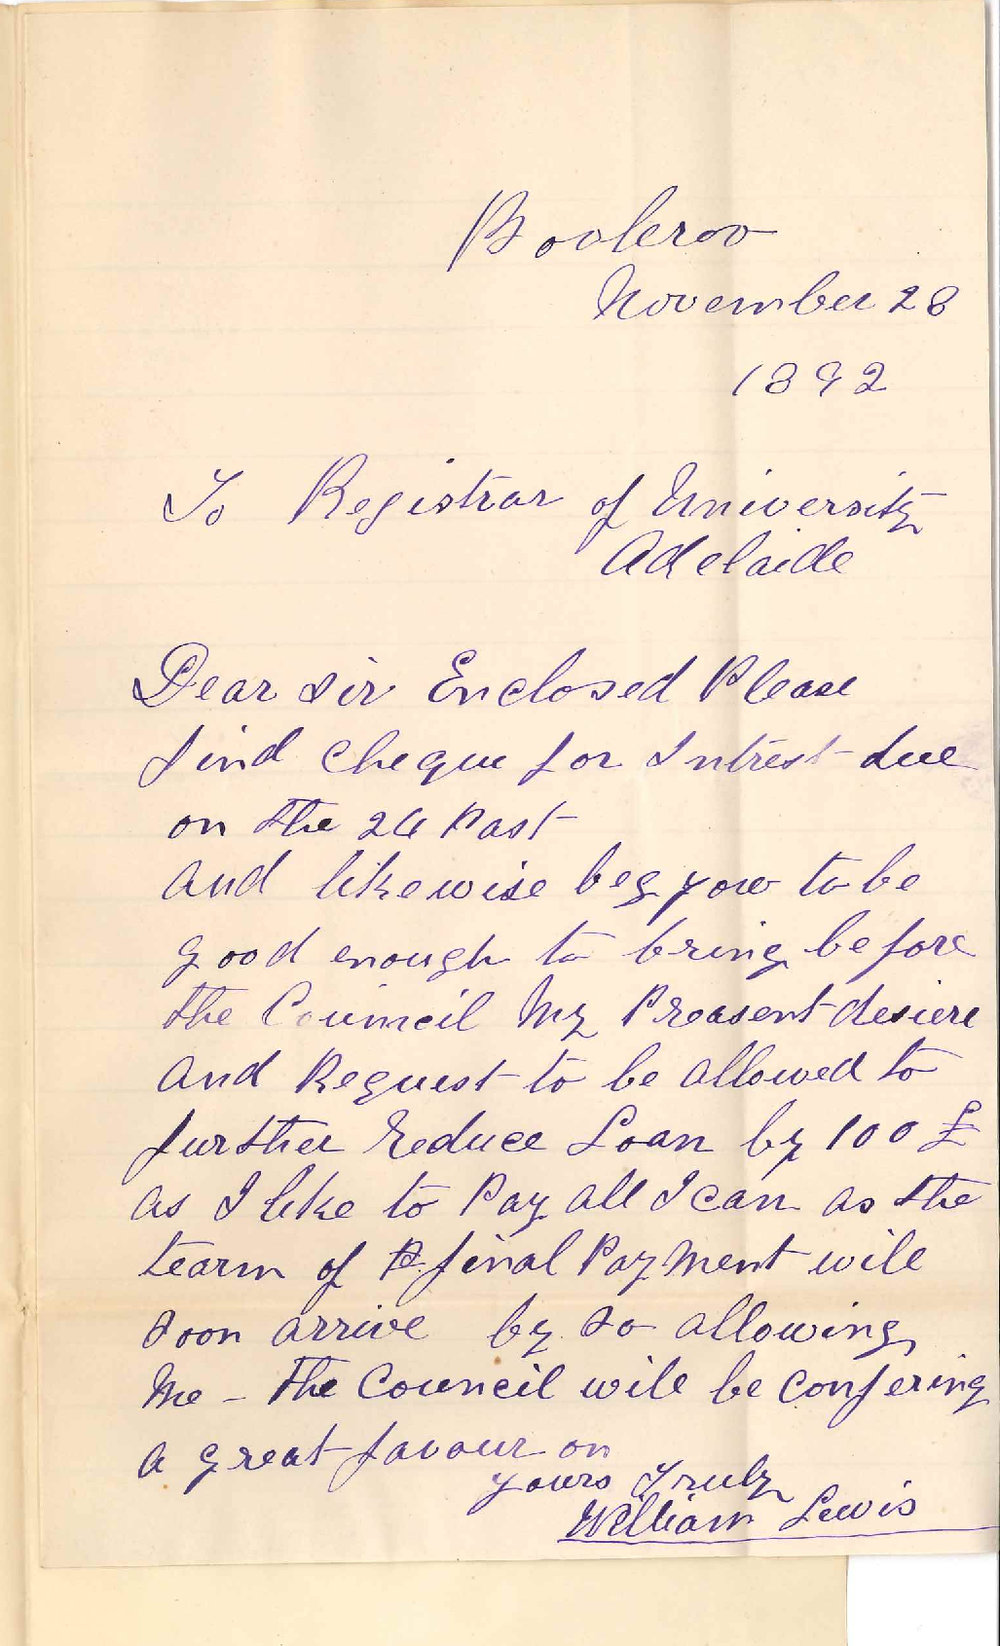 Booleroo
November 28
1892
To Registrar of University
Adelaide
Dear Sir Enclosed Please
find cheque for Intrest due
on the 26 Past
and likewise beg you to be
good enough to bring before
the Council My Preasent desiere
and Request to be allowed to
further reduce Loan by 100 £
as I like to Pay all I can as the
tearm of P final PayMent will
soon arrive by so allowing
Me - the Council will be confering
a great favour on
yours Truly
William Lewis